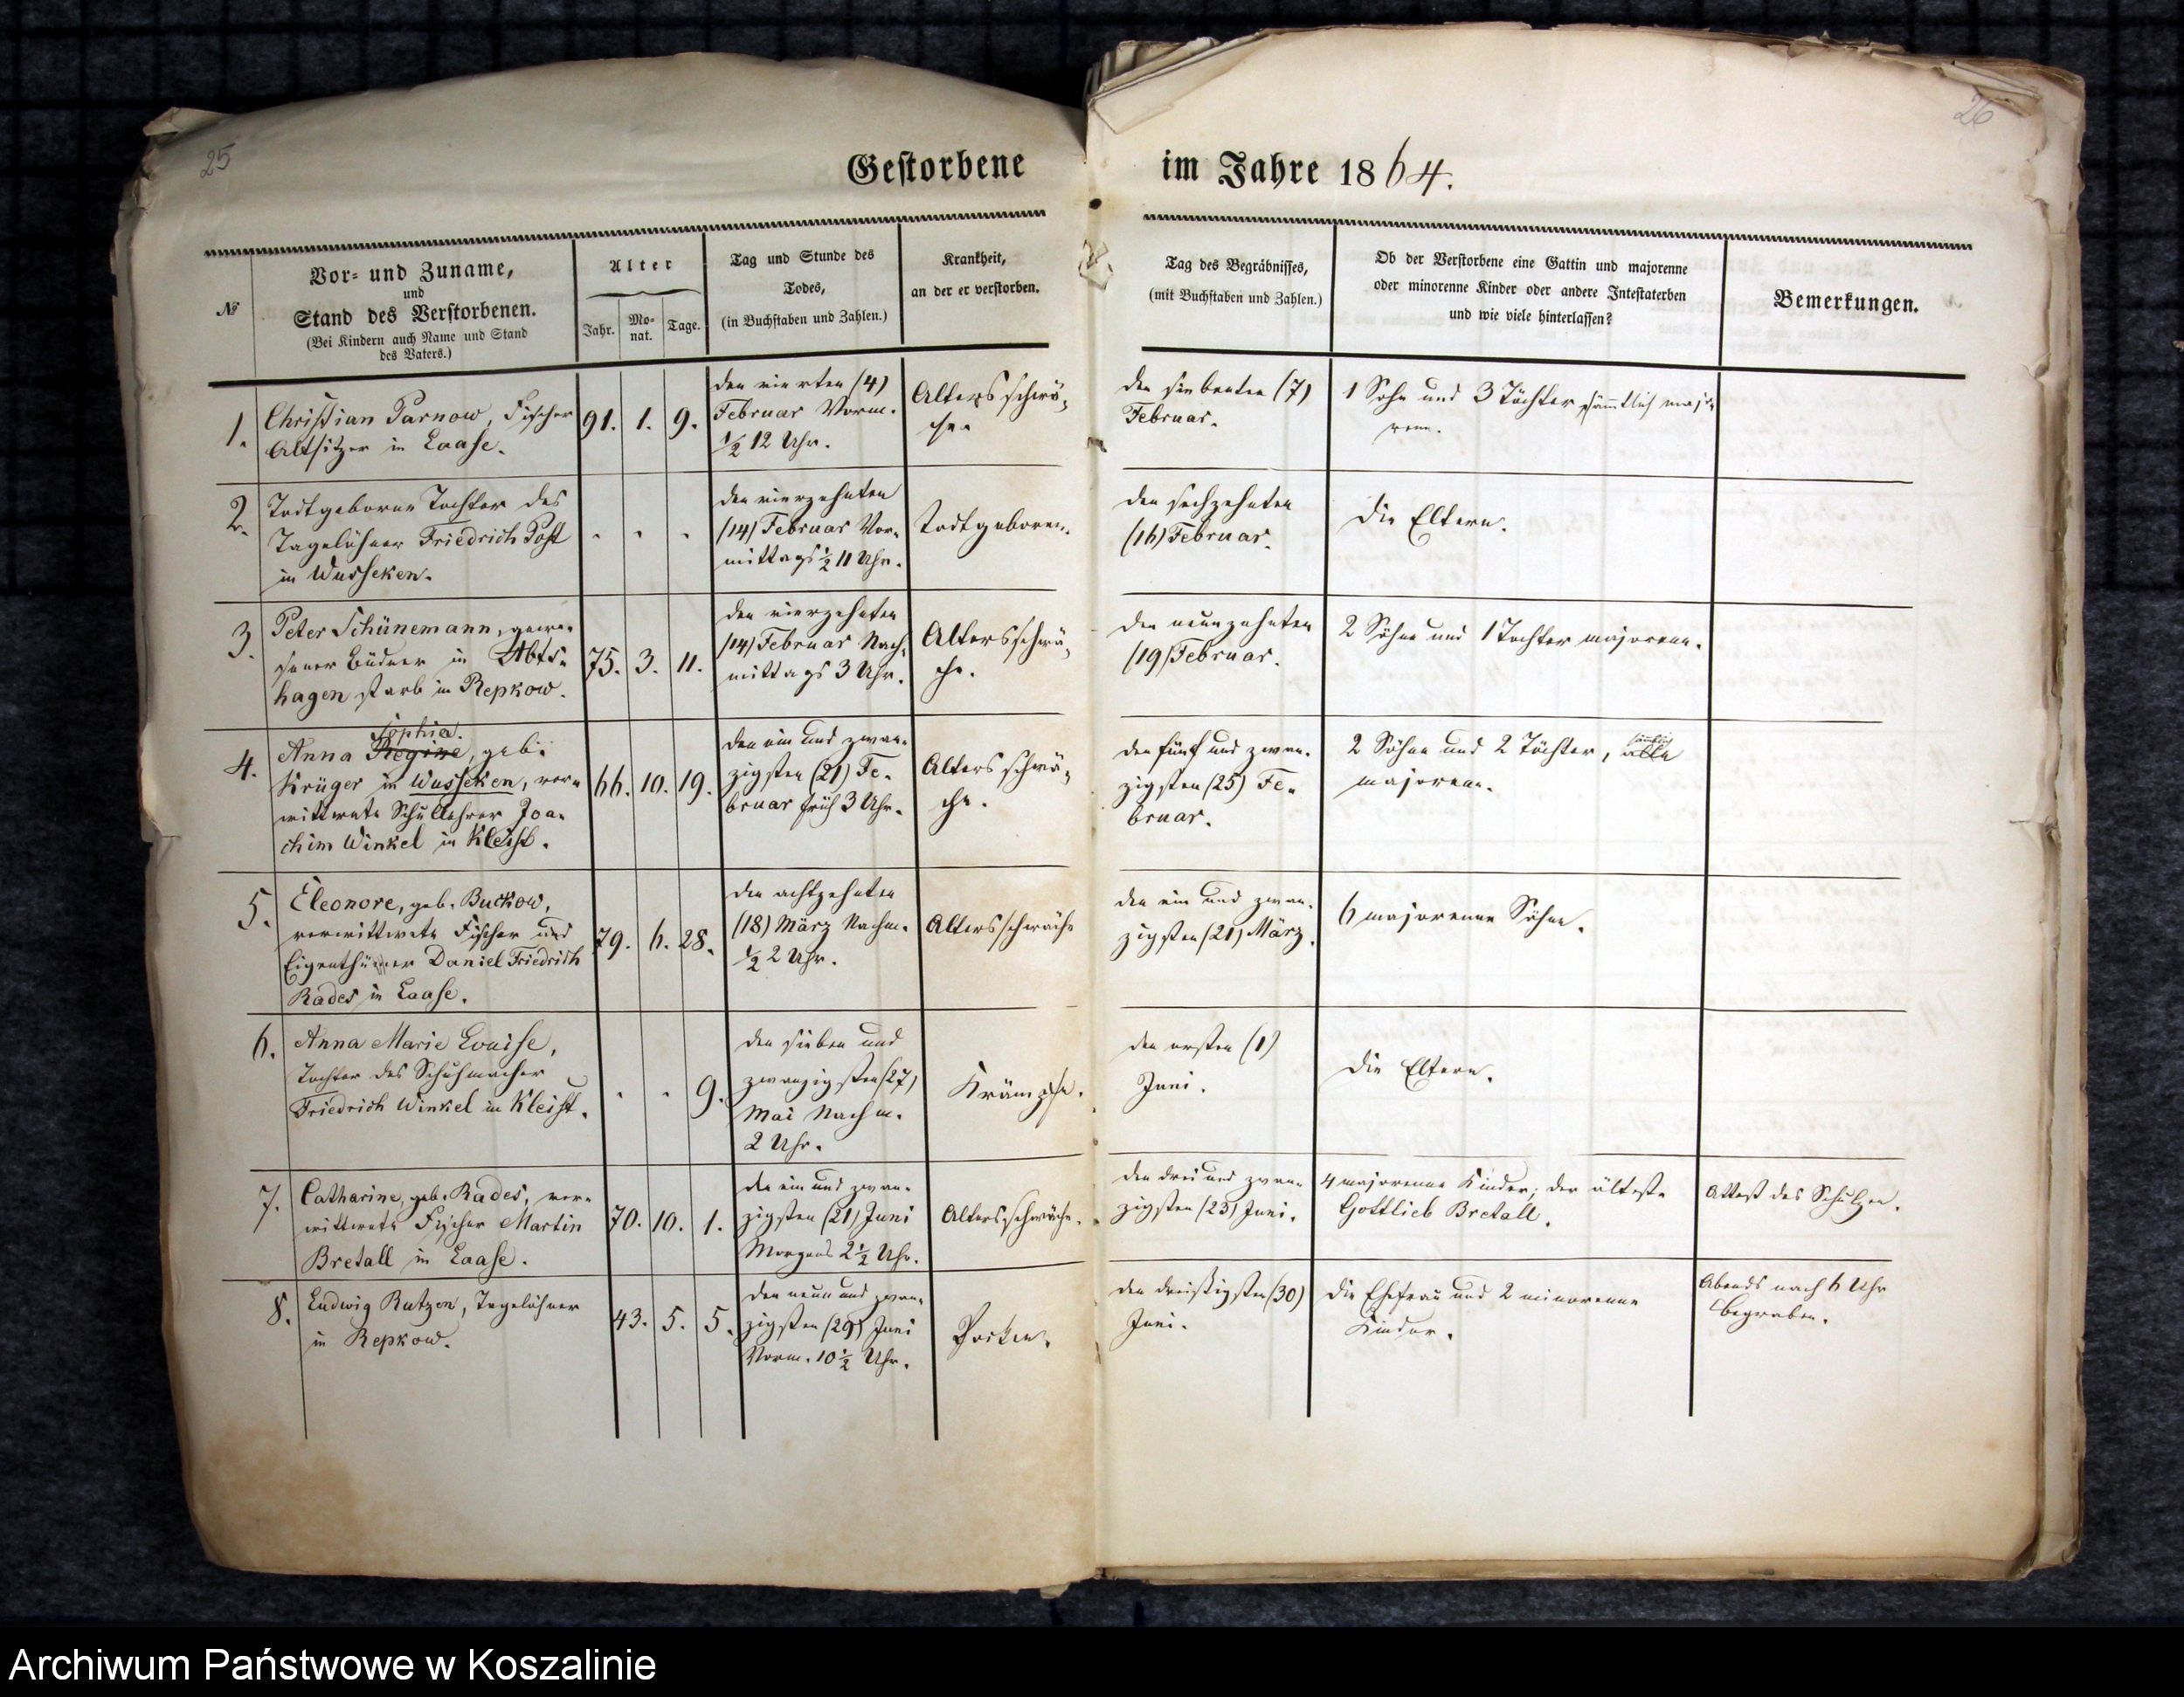 25
26
Gestorbene im Jahre 1864.
№
Vor- und Zuname,
und
Stand des Verstorbenen.
(Bei Kindern auch Name und Stand
des Vaters.)
Alter
Jahr.
Mo-
nat.
Tage.
Tag und Stunde des
Todes,
(in Buchstaben und Zahlen.)
Krankheit,
an der er verstorben.
Tag des Begräbnisses,
(mit Buchstaben und Zahlen.)
Ob der Verstorbene eine Gattin und majorenne
oder minorenne Kinder oder andere Intestaterben
und wie viele hinterlassen?
Bemerkungen.
1.
Christian Parnow, Fischer
Altsitzer in Laase.
91. 1. 9.
den vierten (4)
Februar Vorm.
½ 12 Uhr.
Altersschwä-
che.
den siebenten (7)
Februar.
1 Sohn und 3 Töchter sämmtlich majo-
renn.
2.
Todtgeborne Tochter des
Tagelöhner Friedrich Post
in Wusseken.
. . .
den vierzehnten
(14) Februar Vor-
mittags ½ 11 Uhr.
Todtgeboren.
den sechzehnten
(16) Februar.
Die Eltern.
3.
Peter Schünemann, gewe-
sener Büdner in Abts-
hagen starb in Repkow.
75. 3. 11.
den vierzehnten
(14) Februar Nach-
mittags 3 Uhr.
Altersschwä-
che.
den neunzehnten
(19) Februar.
2 Söhne und 1 Tochter majorenn.
4.
Sophia.
Anna Regine, geb.
Krüger in Wusseken, ver-
wittwete Schullehrer Joa-
chim Winkel in Kleist.
66. 10. 19.
den ein und zwan-
zigsten (21) Fe-
bruar früh 3 Uhr.
Altersschwä-
che.
den fünf und zwan-
zigsten (25) Fe-
bruar.
sämtlich
2 Söhne und 2 Töchter, alle
majorenn.
5.
Eleonore, geb. Buckow,
verwittwete Fischer und
Eigenthümer Daniel Friedrich
Rades in Laase.
79. 6. 28.
den achtzehnten
(18) März Nachm.
½ 2 Uhr.
Altersschwäche
den ein und zwan-
zigsten (21) März.
6 majorenne Söhne.
6.
Anna Marie Louise,
Tochter des Schuhmacher
Friedrich Winkel in Kleist.
. . 9.
den sieben und
zwanzigsten (27)
Mai Nachm.
2 Uhr.
Krämpfe.
den ersten (1)
Juni.
Die Eltern.
7.
Catharine, geb. Rades, ver-
wittwete Fischer Martin
Bretall in Laase.
70. 10. 1.
den ein und zwan-
zigsten (21) Juni
Morgens 2½ Uhr.
Altersschwäche.
den drei und zwan-
zigsten (23) Juni.
4 majorenne Kinder; der älteste
Gottlieb Bretall.
Attest des Schulzen.
8.
Ludwig Rutzen, Tagelöhner
in Repkow.
43. 5. 5.
den neun und zwan-
zigsten (29) Juni
Vorm. 10½ Uhr.
Pocken.
den dreißigsten (30)
Juni.
Die Ehefrau und 2 minorenne
Kinder.
Abends nach 6 Uhr
begraben.
Archiwum Państwowe w Koszalinie